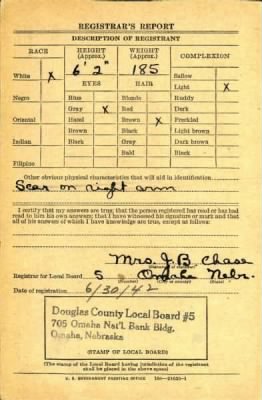 REGISTRAR'S REPORT
DESCRIPTION OF REGISTRANT
RACE HEIGHT (Approx.) WEIGHT (Approx.) COMPLEXION
6' 2" 185
White X Sallow
EYES HAIR Light X
Negro Blue Blonde Ruddy
Gray X Red Dark
Oriental Hazel Brown X Freckled
Brown Black Light brown
Indian Black Gray Dark brown
Bald Black
Filipino
Other obvious physical characteristics that will aid in identification
Scar on right arm
I certify that my answers are true; that the person registered has read or has had
read to him his own answers; that I have witnessed his signature or mark and that
all of his answers of which I have knowledge are true, except as follows:
Mrs. J. B. Chase
Registrar for Local Board 5 Omaha Nebr.
(Number) (City or county)
Date of registration 6/30/42
Douglas County Local Board #5
705 Omaha Nat'l. Bank Bldg.
Omaha, Nebraska
(STAMP OF LOCAL BOARD)
(The stamp of the Local Board having jurisdiction of the registrant
shall be placed in the above space)
U. S. GOVERNMENT PRINTING OFFICE 16—21630-1